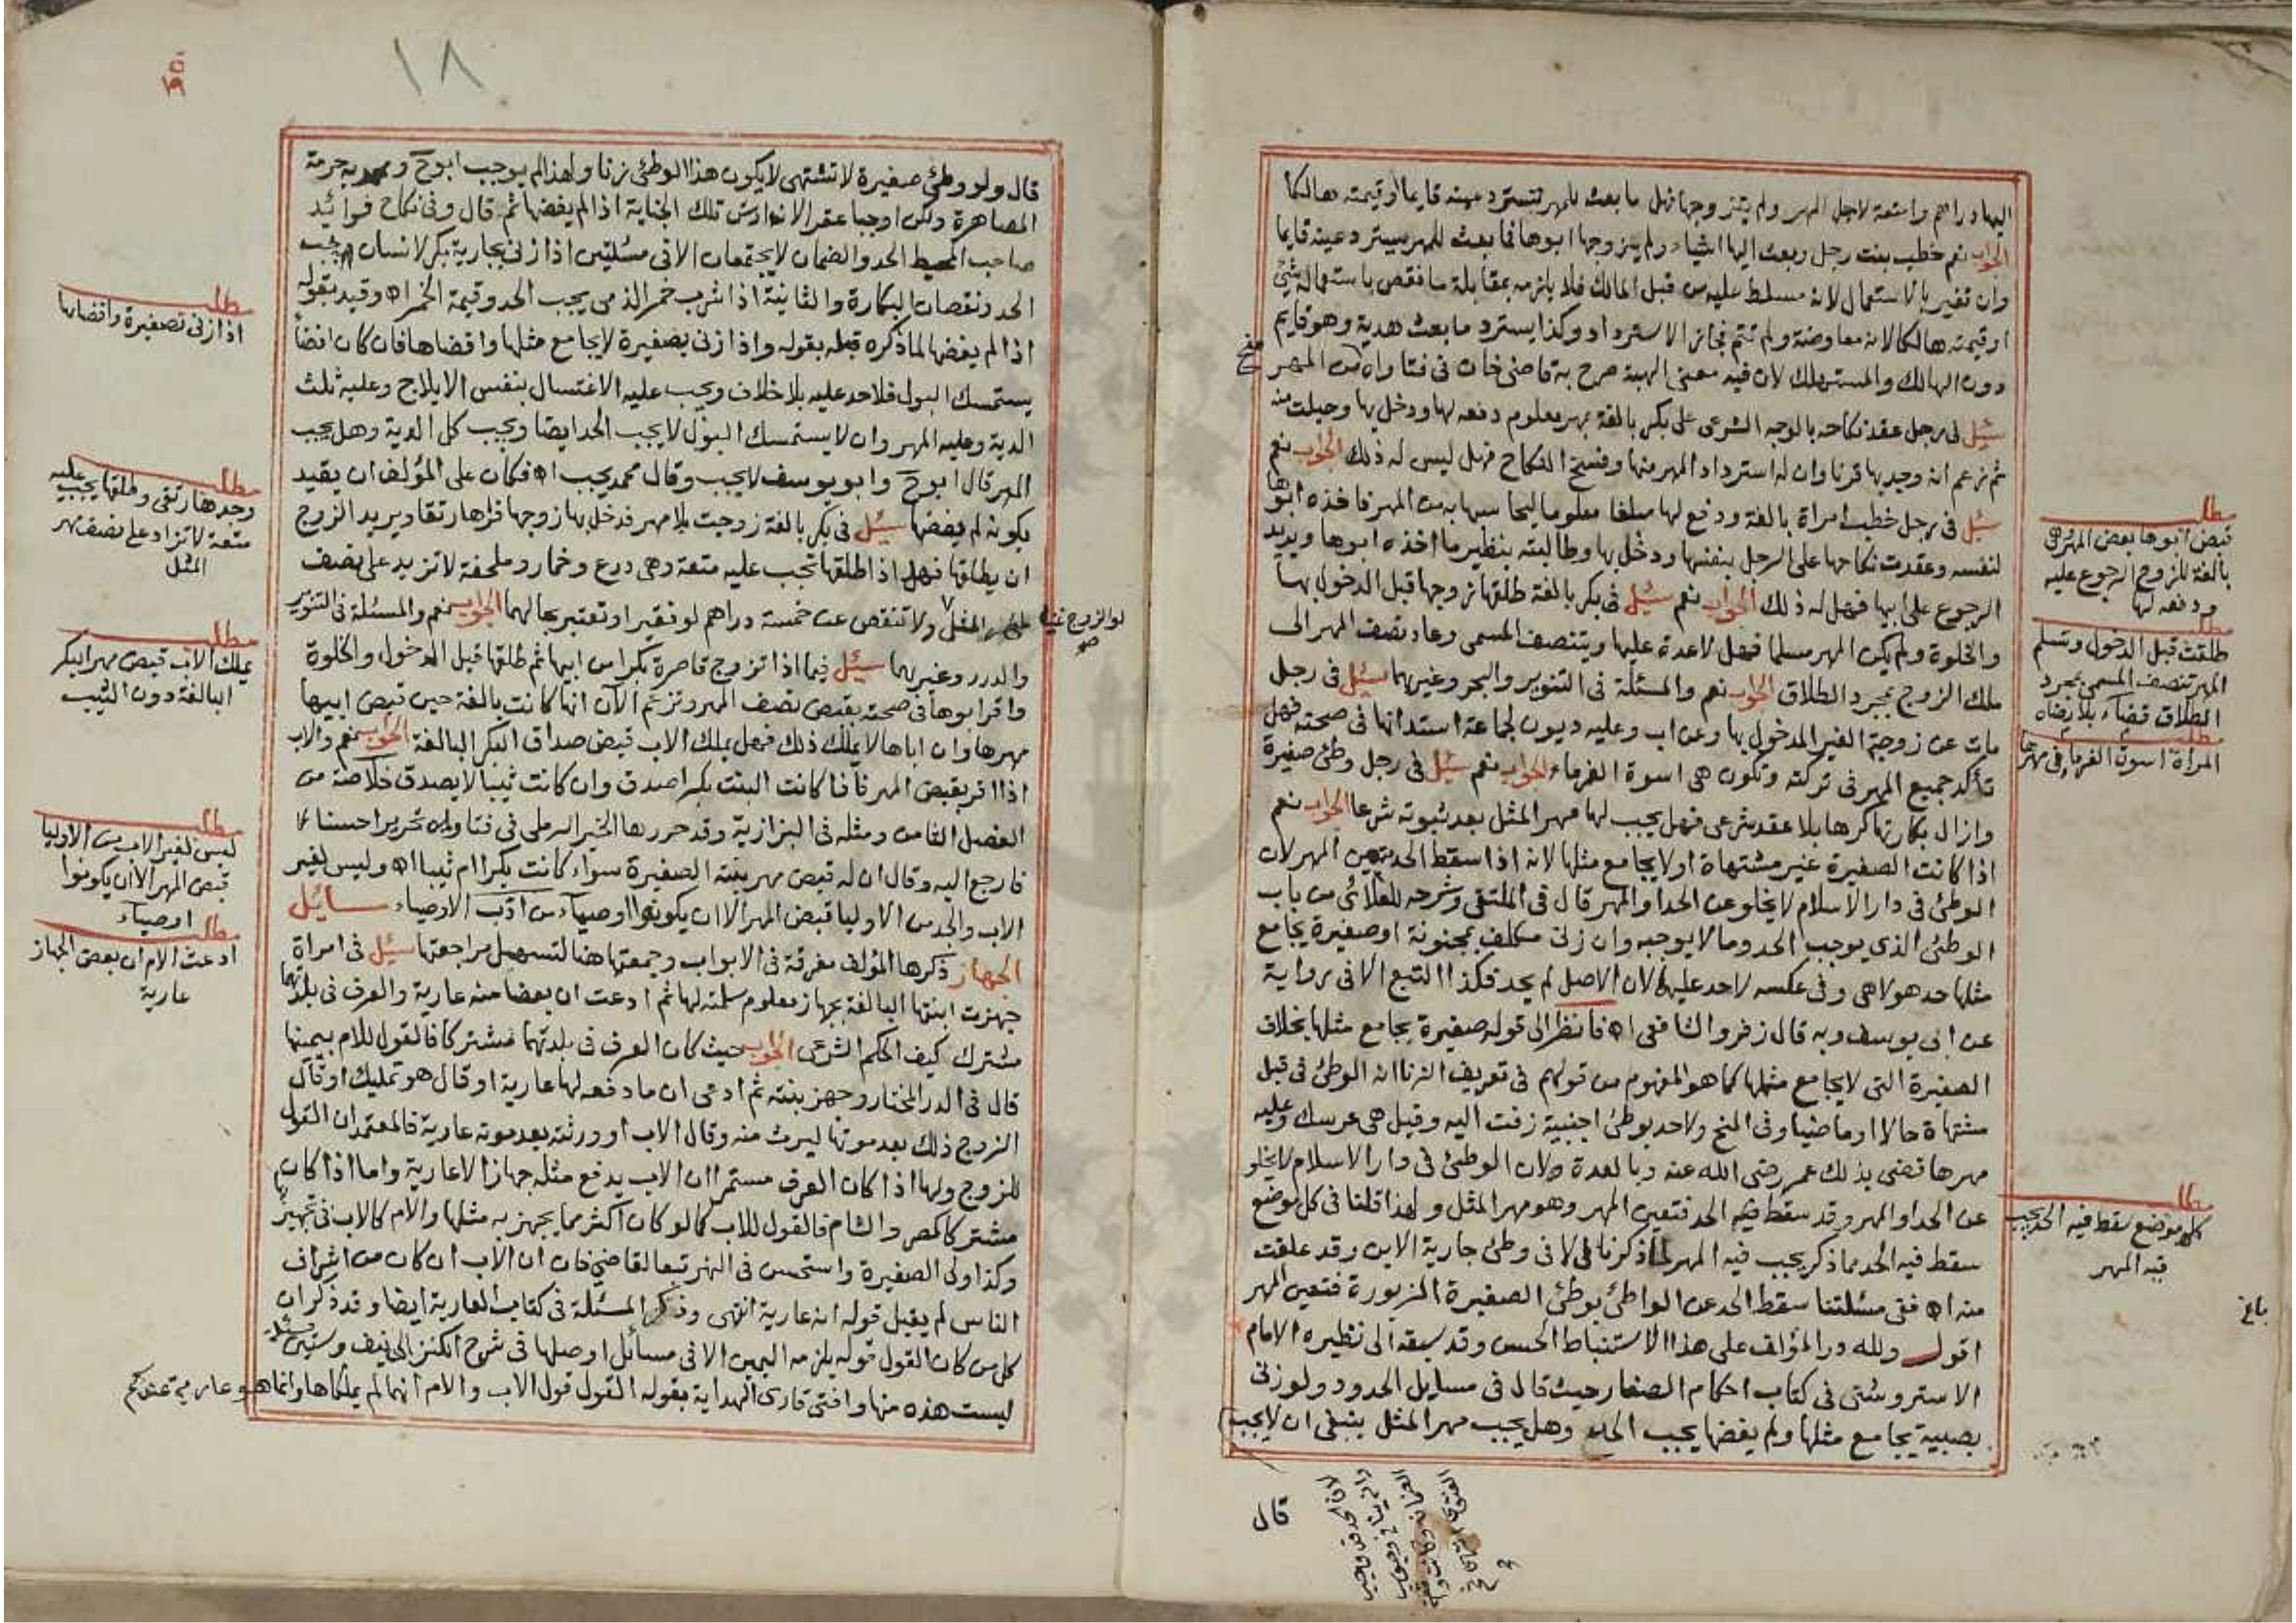 اليها دراهم وامتعة لاجل المهر ولم يتزوجها فهل ما بعث للمهر تسترد عينه قايما او قيمته هالكا
الجواب نعم خطب بنت رجل وبعث اليها اشياء ولم يزوجها ابوها فما بعث للمهر يسترد عينه قايما
وان تغير بالاستعمال لانه مسلط عليه من قبل المالك فلا يلزمه بمقابلة ما نقص باستعماله شئ
او قيمته هالكا لانه معاوضة ولم تتم فجاز الاسترداد وكذا يسترد ما بعث هدية وهو قايم
دون الهالك والمستهلك لان فيه معنى الهبة صرح به قاضي خان فى فتاواه من المهر
سئل فى رجل عقد نكاحه بالوجه الشرعى على بكر بالغة بمهر معلوم دفعه لها ودخل بها وحبلت منه
ثم زعم انه وجد بها قرنا وان له استرداد المهر منها وفسخ النكاح فهل ليس له ذلك الجواب نعم
سئل فى رجل خطب امراة بالغة ودفع لها مبلغا معلوما ليحاسبها به من المهر فاخذه ابوها
لنفسه وعقدت نكاحها على الرجل بنفسها ودخل بها وطالبته بنظير ما اخذه ابوها ويريد
الرجوع على ابيها فهل له ذلك الجواب نعم سئل فى بكر بالغة طلقها زوجها قبل الدخول بها
والخلوة ولم يكن المهر مسلما فهل لاعدة عليها ويتنصف المسمى وعاد نصف المهر الى
ملك الزوج بمجرد الطلاق الجواب نعم والمسئلة فى التنوير والبحر وغيرهما سئل فى رجل
مات عن زوجته الغير المدخول بها وعن اب وعليه ديون لجماعة استدانها فى صحته فهل
تأكد جميع المهر فى تركته وتكون هى اسوة الغرماء الجواب نعم سئل فى رجل وطئ صغيرة
وازال بكارتها كرها بلا عقد شرعى فهل يجب لها مهر المثل بعد ثبوته شرعا الجواب نعم
اذا كانت الصغيرة غير مشتهاة او لا يجامع مثلها لانه اذا سقط الحد تعين المهر لان
الوطئ فى دار الاسلام لا يخلو عن الحد او المهر قال فى الملتقى وشرحه للعلائى من باب
الوطئ الذى يوجب الحد وما لا يوجبه وان زنى مكلف بمجنونة او صغيرة يجامع
مثلها حد هو لا هى وفى عكسه لاحد عليها لان الاصل لم يحد فكذا التبع الا فى رواية
عن ابى يوسف وبه قال زفر والشافعى اه فانظر الى قوله صغيرة يجامع مثلها بخلاف
الصغيرة التى لا يجامع مثلها كما هو المفهوم من قولهم فى تعريف الزنا انه الوطئ فى قبل
مشتهاة حالا او ماضيا وفى المنح ولاحد بوطئ اجنبية زفت اليه وقيل هى عرسك وعليه
مهرها قضى بذلك عمر رضى الله عنه وبالعدة ولان الوطئ فى دار الاسلام لا يخلو
عن الحد او المهر وقد سقط فيه الحد فتعين المهر وهو مهر المثل ولهذا قلنا فى كل موضع
سقط فيه الحد مما ذكر يجب فيه المهر لما ذكرنا الا فى وطئ جارية الابن وقد علقت
منه اه ففى مسئلتنا سقط الحد عن الواطئ بوطئ الصغيرة المزبورة فتعين المهر
اقول ولله در المؤلف على هذا الاستنباط الحسن وقد سبقه الى نظيره الامام
الاستروشنى فى كتاب احكام الصغار حيث قال فى مسايل الحدود ولو زنى
بصبية يجامع مثلها ولم يفضها يجب الحد وهل يجب مهر المثل ينبغى ان لا يجب
قال
مطلب
قبض ابوها بعض المهر وهى
بالغة للزوج الرجوع عليه
ودفعه لها
مطلب
طلقت قبل الدخول وتسلم
المهر تنصف المسمى بمجرد
الطلاق قضاء بلا رضاه
مطلب
المراة اسوة الغرماء فى مهرها
مطلب
كل موضع سقط فيه الحد يجب
فيه المهر
بلغ
١٨
قال ولو وطئ صغيرة لا تشتهى لا يكون هذا الوطئ زنا ولهذا لم يوجب ابو ح ومحمد به حرمة
المصاهرة ولكن اوجبا عقرا لانه ارش تلك الجناية اذا لم يفضها ثم قال وفى نكاح فوائد
صاحب المحيط الحد والضمان لا يجتمعان الا فى مسئلتين اذا زنى بجارية بكر لانسان يجب
الحد ونقصان البكارة والثانية اذا شرب خمر الذمى يجب الحد وقيمة الخمر اه وقيد بقوله
اذا لم يفضها لما ذكره قبله بقوله واذا زنى بصغيرة لا يجامع مثلها وافضاها فان كان افضا
يستمسك البول فلا حد عليه بلا خلاف ويجب عليه الاغتسال بنفس الايلاج وعليه ثلث
الدية وعليه المهر وان لا يستمسك البول لا يجب الحد ايضا ويجب كل الدية وهل يجب
المهر قال ابو ح وابو يوسف لا يجب وقال محمد يجب اه فكان على المؤلف ان يقيد
بكونه لم يفضها سئل فى بكر بالغة زوجت بلا مهر فدخل بها زوجها فراها رتقا ويريد الزوج
ان يطلقها فهل اذا طلقها تجب عليه متعة وهى درع وخمار وملحفة لا تزيد على نصف
مهر المثل ولا تنقص عن خمسة دراهم لو فقيرا وتعتبر بحالهما الجواب نعم والمسئلة فى التنوير
لو الزوج غنيا صح
والدرر وغيرهما سئل فيما اذا تزوج قاصرة بكرا من ابيها ثم طلقها قبل الدخول والخلوة
واقر ابوها فى صحته بقبض نصف المهر وتزعم الآن انها كانت بالغة حين قبض ابيها
مهرها وان اباها لا يملك ذلك فهل يملك الاب قبض صداق البكر البالغة الجواب نعم والاب
اذا اقر بقبض المهر فاذا كانت البنت بكرا صدق وان كانت ثيبا لا يصدق خلاصة من
الفصل الثامن ومثله فى البزازية وقد حررها الخير الرملى فى فتاواه تحريرا حسنا
فارجع اليه وقال ان له قبض مهر بنته الصغيرة سواء كانت بكرا ام ثيبا اه وليس لغير
الاب والجد من الاوليا قبض المهر الا ان يكونوا اوصياء من ادب الاوصياء مسايل
الجهاز ذكرها المؤلف مفرقة فى الابواب وجمعتها هنا لتسهيل مراجعتها سئل فى امراة
جهزت ابنتها البالغة بجهاز معلوم سلمته لها ثم ادعت ان بعضا منه عارية والعرف فى بلدتهما
مشترك كيف الحكم الشرعى الجواب حيث كان العرف فى بلدتهما مشتركا فالقول للام بيمينها
قال فى الدر المختار وجهز بنته ثم ادعى ان ما دفعه لها عارية او قال هو تمليك او قال
الزوج ذلك بعد موتها ليرث منه وقال الاب او ورثته بعد موته عارية فالمعتمد ان القول
للزوج ولها اذا كان العرف مستمرا ان الاب يدفع مثله جهازا لا عارية واما اذا كان
مشتركا كمصر والشام فالقول للاب كما لو كان اكثر مما يجهز به مثلها والام كالاب فى تجهيزها
وكذا ولى الصغيرة واستحسن فى النهر تبعا لقاضيخان ان الاب ان كان من اشراف
الناس لم يقبل قوله انه عارية انتهى وذكر المسئلة فى كتاب العارية ايضا وقد ذكر ان
كل من كان القول قوله يلزمه اليمين الا فى مسائل اوصلها فى شرح الكنز الى نيف وستين مسئلة
ليست هذه منها وافتى قارى الهداية بقوله القول قول الاب والام انهما لم يملكاها وانما هو عارية عندكم
مطلب
اذا زنى بصغيرة وافضاها
مطلب
وجدها رتقى وطلقها يجب عليه
متعة لا تزاد على نصف مهر
المثل
مطلب
يملك الاب قبض مهر البكر
البالغة دون الثيب
مطلب
ليس لغير الاب من الاوليا
قبض المهر الا ان يكونوا
اوصياء
مطلب
ادعت الام ان بعض الجهاز
عارية